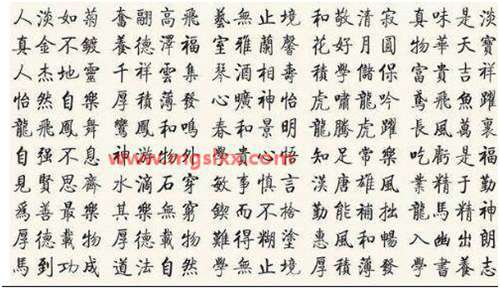 人淡如菊 奮翮高飛 藝無止境 和敬清寂 真味是淡
真金不鍍 養德澤福 室雅蘭馨 花好月圓 物華天寶
人杰地靈 千祥雲集 琴 相壽 積學儲 富貴吉祥
怡然自樂 厚積薄發 心曠神怡 虎嘯龍吟 鳶飛魚躍
龍飛鳳舞 鸞鳳和鳴 春和景明 龍騰虎躍 長風萬裏
自强不息 神游物外 學貴心悟 知足常樂 吃虧是福
見賢思齊 水滴石穿 敏事慎言 漢唐雄風 業精于勤
為善最樂 其樂無窮 鍥而不捨 勤能補拙 龍馬精神
厚德載物 厚德載物 難得糊塗 惠風和暢 入幽出朗
馬到功成 道法自然 學無止境 厚積薄發 學書養志
www.mgslxx.com